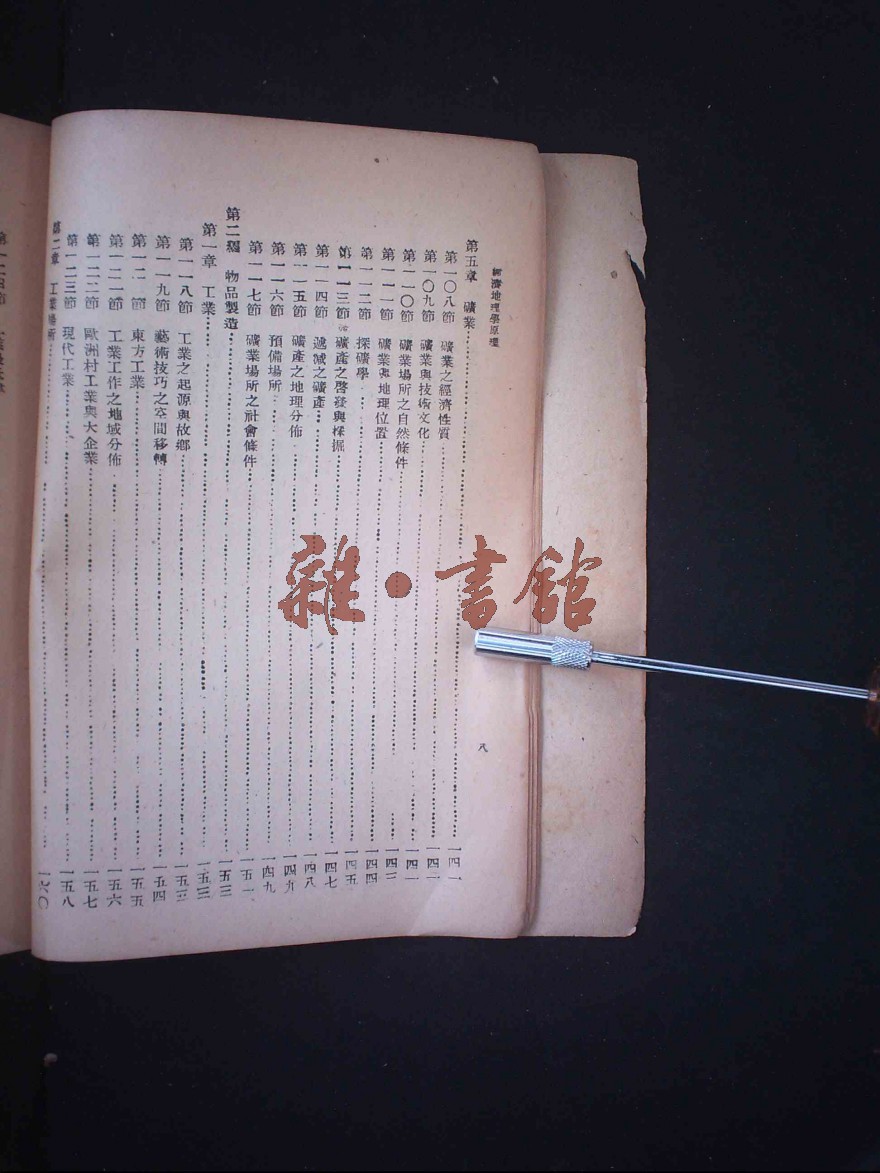 經濟地理學原理
八
第五章 礦業 一四一
第一〇八節 礦業之經濟性質 一四一
第一〇九節 礦業與技術文化 一四二
第一一〇節 礦業場所之自然條件 一四二
第一一一節 礦業與地理位置 一四三
第一一二節 探礦學 一四四
第一一三節 礦產之啓發與採掘 一四五
第一一四節 遞減之礦產 一四七
第一一五節 礦產之地理分佈 一四八
第一一六節 預備場所 一四九
第一一七節 礦業場所之社會條件 一五一
第二編 物品製造 一五三
第一章 工業 一五三
第一一八節 工業之起源與故鄉 一五三
第一一九節 藝術技巧之空間移轉 一五四
第一二〇節 東方工業 一五五
第一二一節 工業工作之地域分佈 一五六
第一二二節 歐洲村工業與大企業 一五七
第一二三節 現代工業 一五八
第二章 工業場所 一六〇
雜·書館